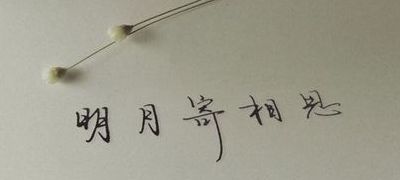 明月寄相思